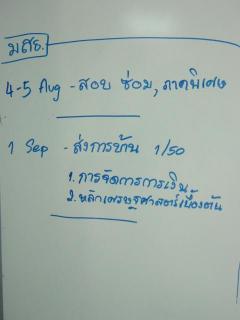 มสธ.
4-5 Aug - สอบ ซ่อม, ภาคพิเศษ
1 Sep - ส่งการบ้าน 1/50
1. การจัดการการเงิน
2. หลักเศรษฐศาสตร์เบื้องต้น